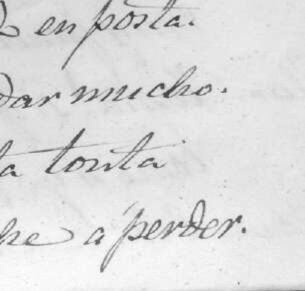 en posta.
dar mucho.
ta tonta
he a perder.